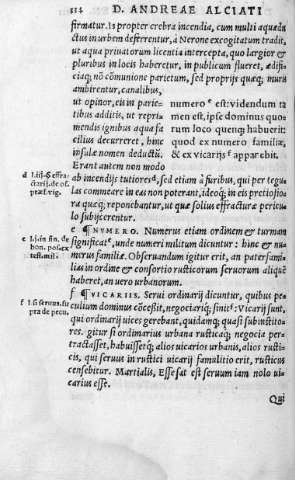 334 D. ANDREAE ALCIATI
firmatur. Is propter crebra incendia, cum multi aquædu
ctus in urbem deferrentur, à Nerone excogitatum tradit,
ut aqua priuatorum licentia intercepta, quo largior &
pluribus in locis haberetur, in publicum flueret, ædifi-
ciaq; nō cōmunione parietum, sed proprijs quæq; muris
ambirentur, canalibus,
ut opinor, eis in parie-
tibus additis, ut repri-
mendis ignibus aqua fa
cilius decurreret, hinc
insulæ nomen deductū.
Erant autem non modo
numero e est: videndum ta
men est, ipse dominus quo
rum loco quenq; habuerit:
quod ex numero familiæ,
& ex uicarijs f apparebit.
ab incendijs tutiores d, sed etiam à furibus, qui per tegu
las commeare in eas non poterant, ideoq; in eis pretiosio
ra quæq; reponebantur, ut quæ solius effracturæ pericu
lo subijcerentur.
d l.iij. § effra
ctarij. de of.
præf. vig.
e ¶ NVMERO. Numerus etiam ordinem & turmam
significat e, unde numeri militum dicuntur: hinc & nu-
merus familiæ. Obseruandum igitur erit, an paterfami-
lias in ordine & consortio rusticorum seruorum aliquē
haberet, an uero urbanorum.
e l.j. in fin. de
bon. pos. ex
test. mil.
f ¶ VICARIIS. Serui ordinarij dicuntur, quibus pe-
culium dominus cōcessit, negociariq; sinit f: Vicarij sunt,
qui ordinarij uices gerebant, quidamq; quasi subinstito
res. gitur si ordinarius urbana rusticaq; negocia per-
tractasset, habuissetq; alios uicarios urbanis, alios rusti-
cis, qui seruus in rustici uicarij famulitio erit, rusticus
censebitur. Martialis, Esse sat est seruum iam nolo ui-
carius esse.
f l. si seruus. su
pra de pecu.
Qui